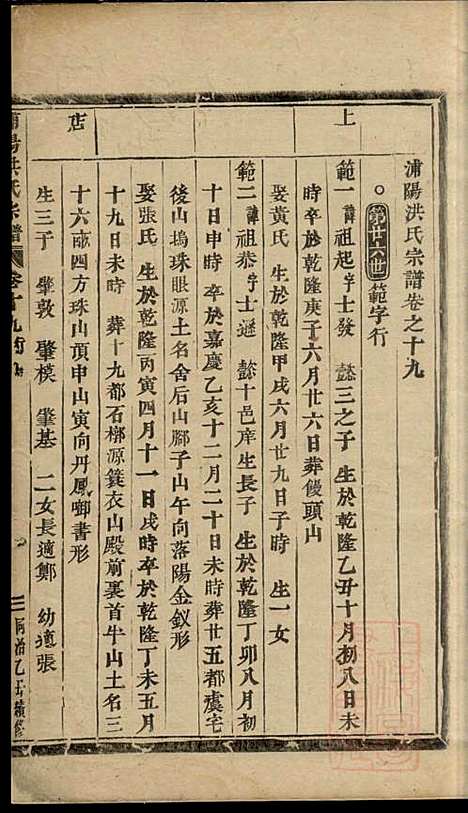 浦陽洪氏宗譜卷之十九
第廿六世 範字行
上
範一 諱祖起字士發 懿三之子 生於乾隆乙丑十月初八日未
時卒於乾隆庚子六月廿六日葬饅頭山
娶黃氏 生於乾隆甲戌六月廿九日子時 生一女
範二 諱祖恭字士遜 懿十邑庠生長子 生於乾隆丁卯八月初
十日申時 卒於嘉慶乙亥十二月二十日未時葬廿五都虞宅
後山塢珠眼源土名舍后山腳子山午向落陽金釵形
娶張氏 生於乾隆丙寅四月十一日戌時卒於乾隆丁未五月
十九日未時 葬十九都石槨源簑衣山殿前裏首牛山土名三
店
十六畝四方珠山頂申山寅向丹鳳啣書形
生三子 肇敦 肇模 肇基 二女長適鄭 幼適張
浦陽洪氏宗譜 卷十九
同治乙丑續修